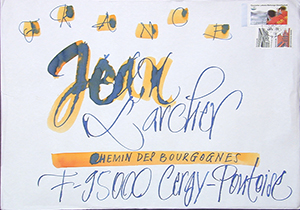 FRANCE
Jean
Larcher
CHEMIN DES BOURGOGNES
F-95000 Cergy-Pontoise